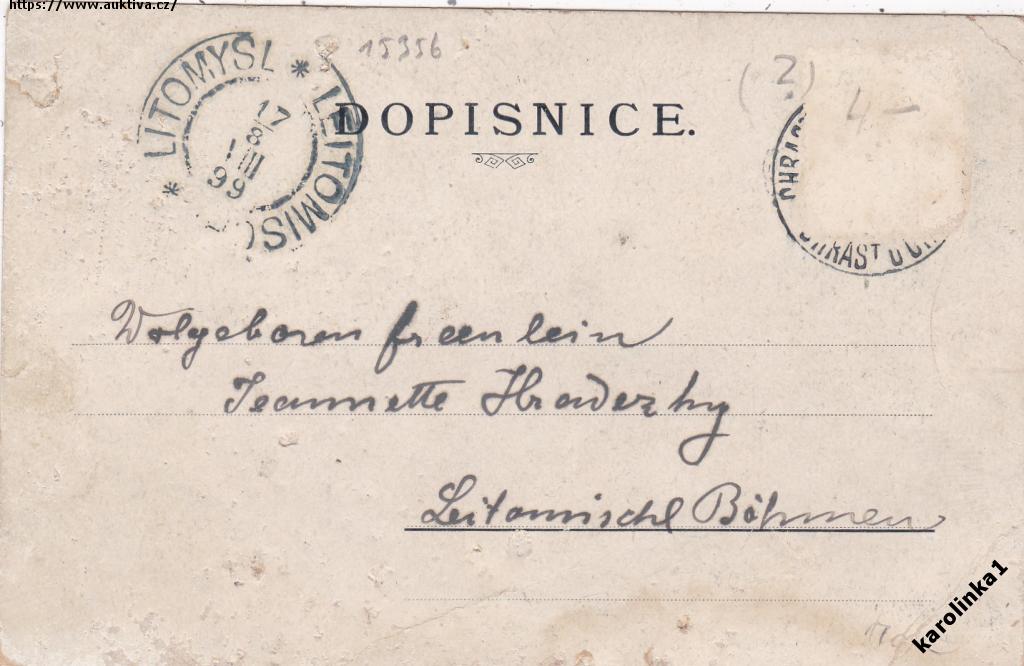 https://www.auktiva.cz/
15356
LITOMYŠL * LEITOMISC *
17/8
III
99
DOPISNICE.
(2)
4-
CHRAST
CHRAST U CH
Wolgeboren freenlein
Jeannette Hradezky
Leitomischl Böhmen
karolinka1